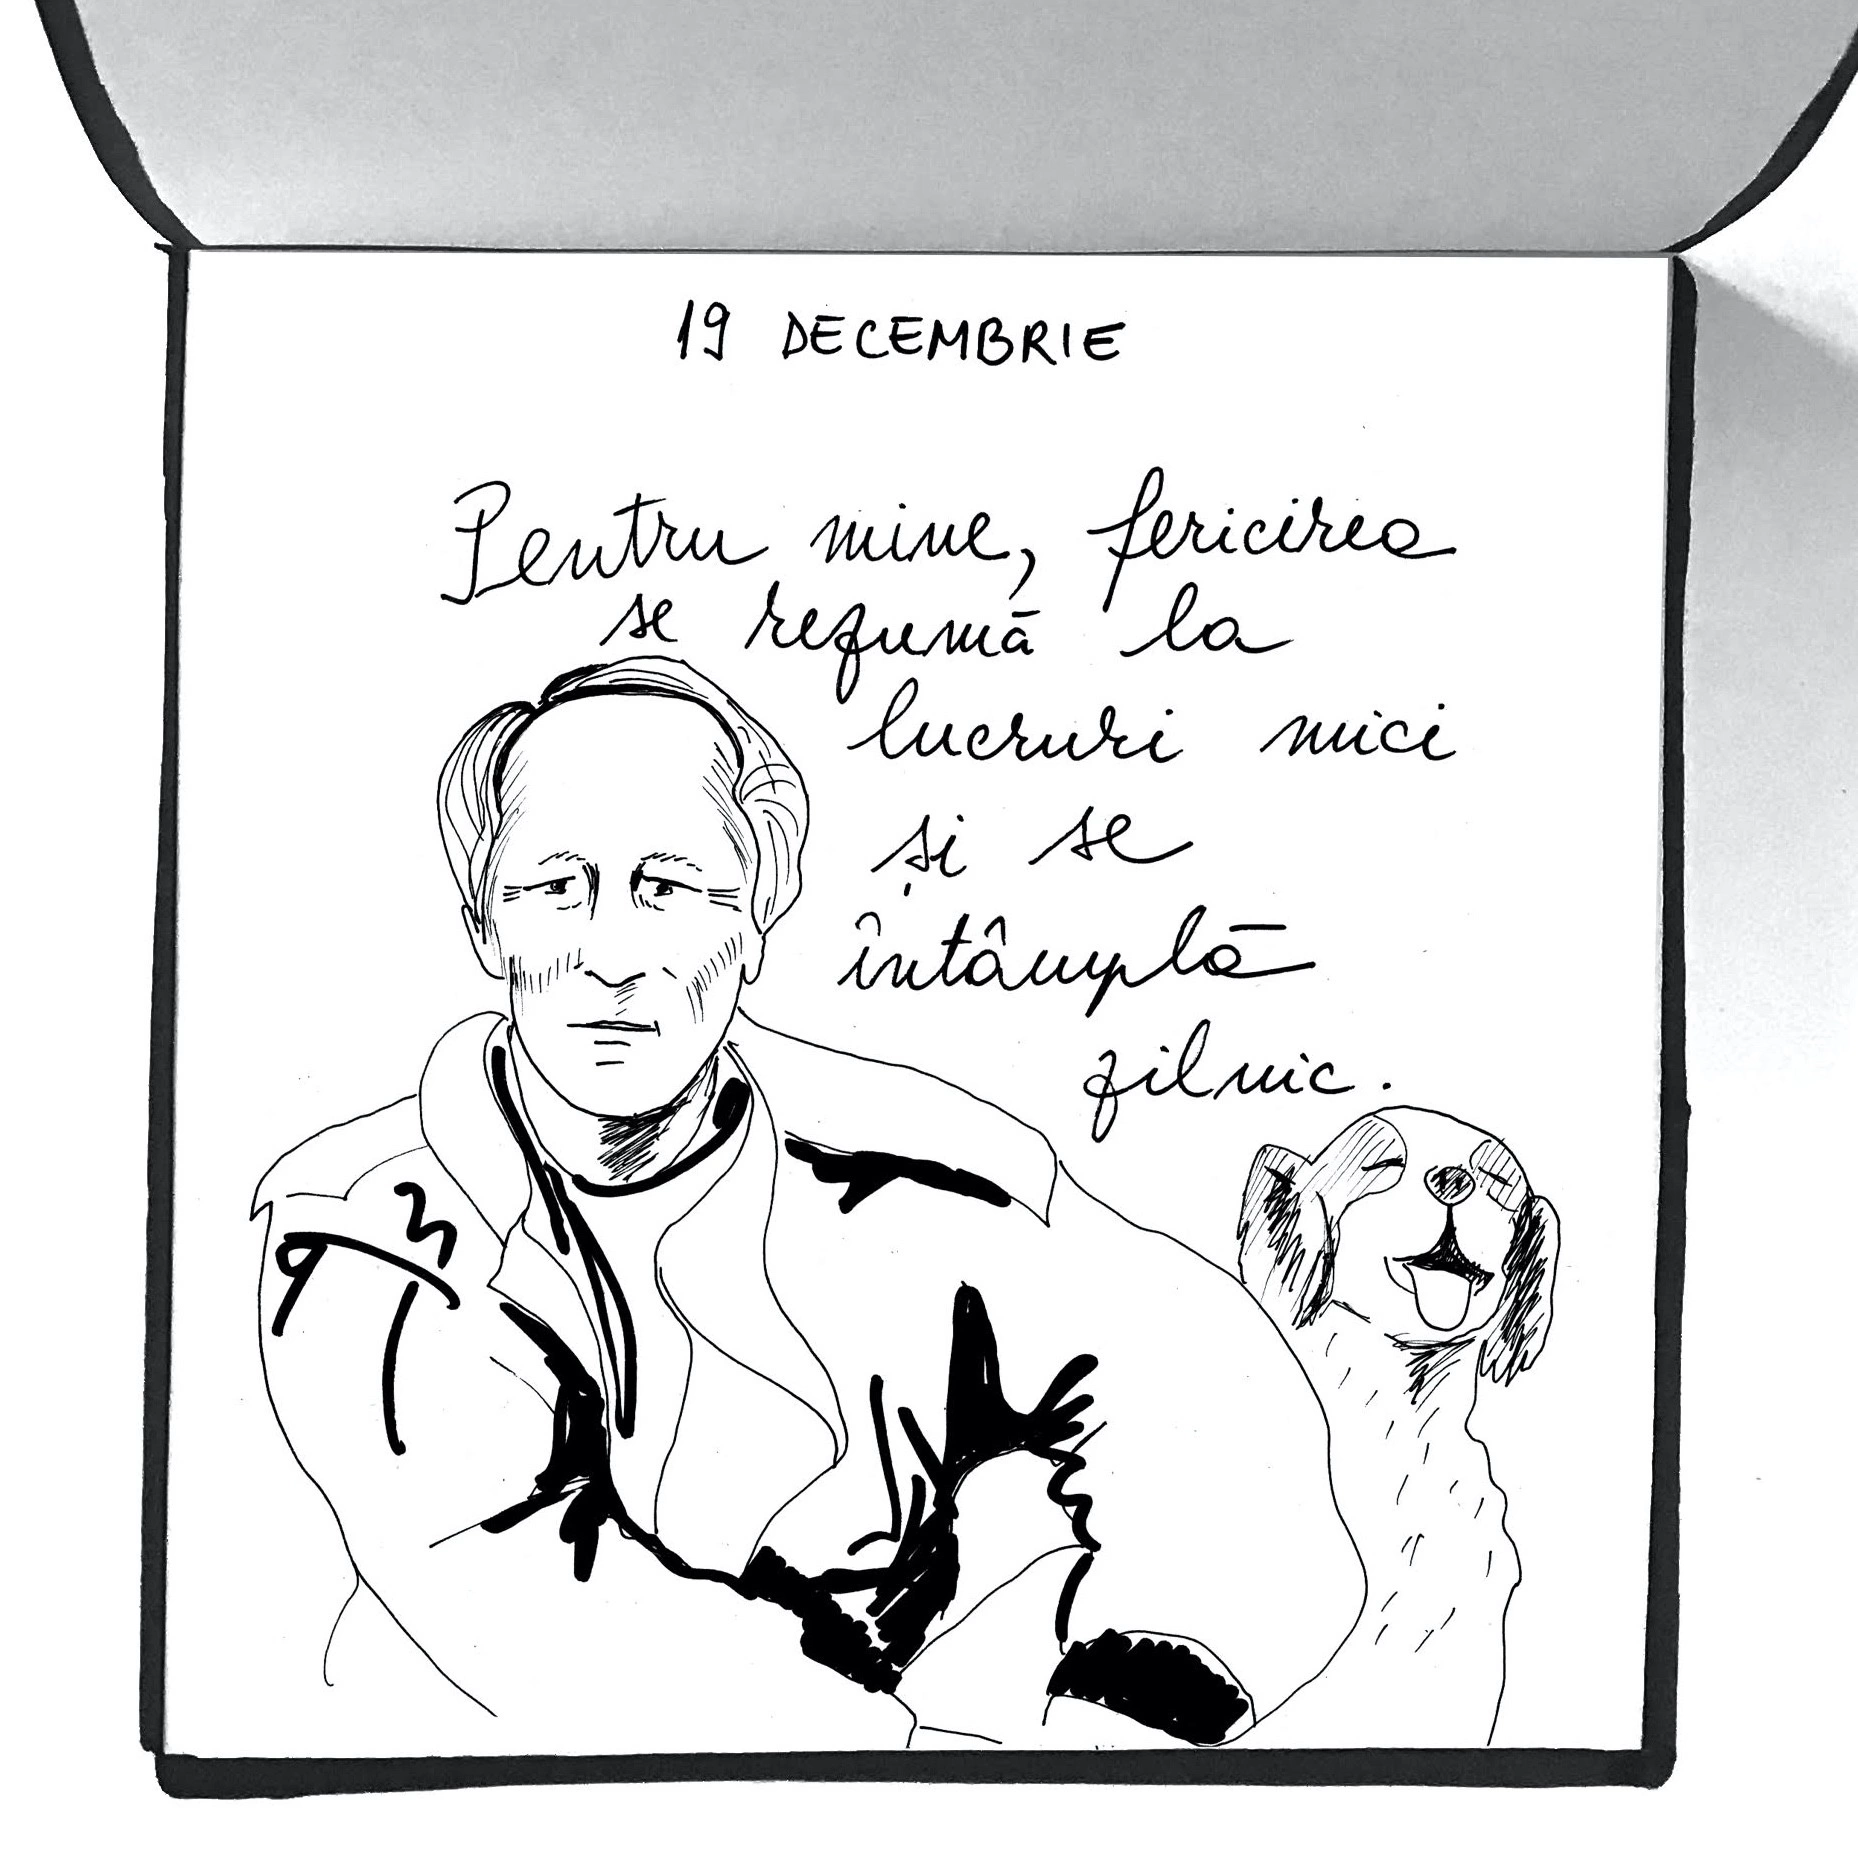 19 DECEMBRIE
Pentru mine, fericirea
se rezumă la
lucruri mici
și se
întâmplă
zilnic.